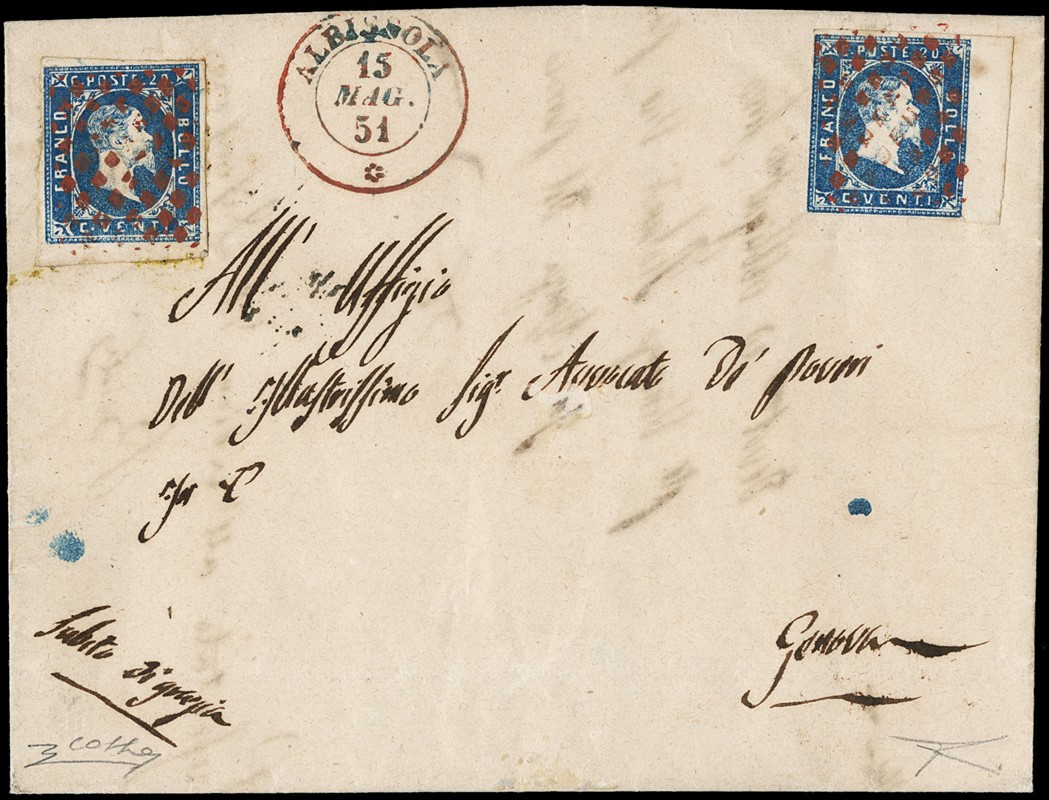 C. POSTE 20
FRANCO
BOLLO
C. VENTI
ALBISSOLA
15
MAG.
51
C. POSTE 20
FRANCO
BOLLO
C. VENTI
All' Uffizio
Dell' Illustrissimo Sigr. Avvocato Di Poveri
Genova
Subito di grazia